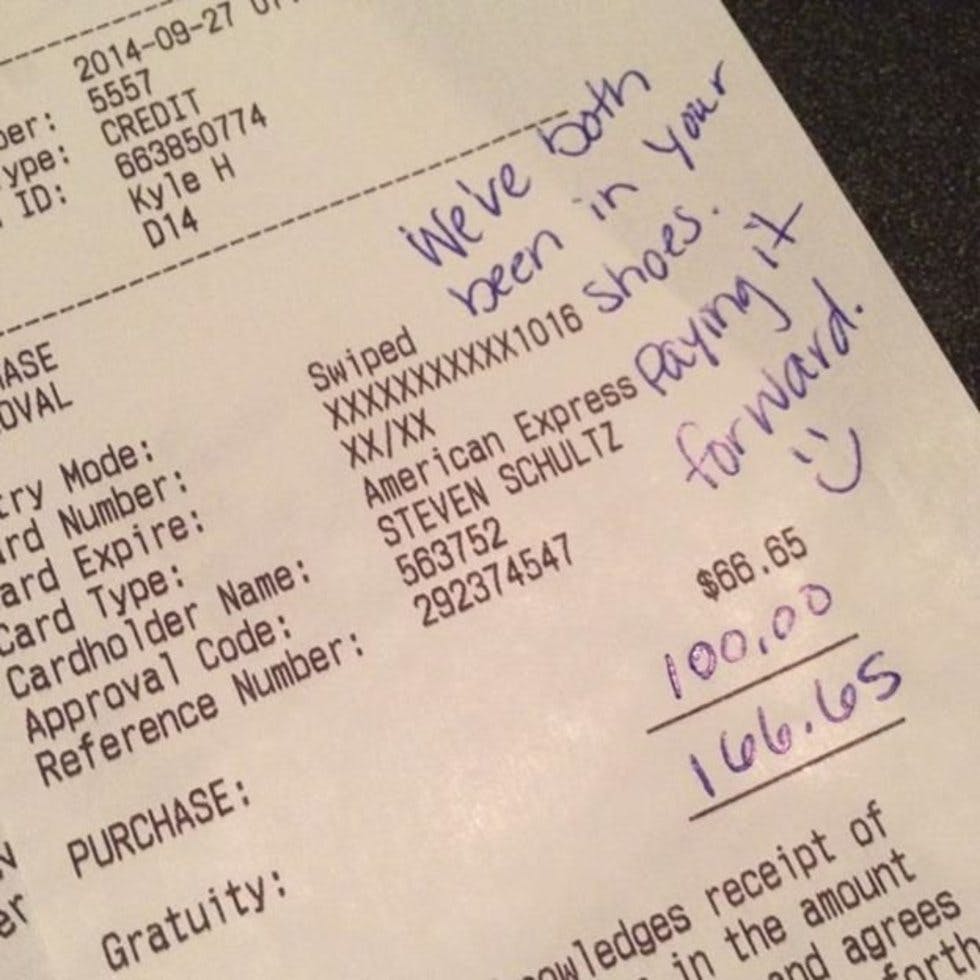 2014-09-27
ber: 5557
ype: CREDIT
ID: 663850774
Kyle H
D14
We've both
been in your
shoes.
Paying it
forward.
:)
ASE
OVAL
try Mode: Swiped
rd Number: XXXXXXXXXXX1016
ard Expire: XX/XX
Card Type: American Express
Cardholder Name: STEVEN SCHULTZ
Approval Code: 563752
Reference Number: 292374547
PURCHASE: $66.65
Gratuity: 100.00
166.65
owledges receipt of
in the amount
and agrees
forth